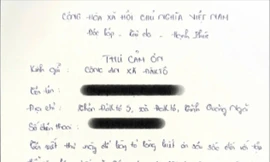 CỘNG HÒA XÃ HỘI CHỦ NGHĨA VIỆT NAM
Độc lập - Tự do - Hạnh Phúc
THƯ CẢM ƠN
Kính gửi: CÔNG AN XÃ
Tôi tên:
Địa chỉ: Quảng Ngãi
Số điện thoại:
Tôi viết thư này để bày tỏ lòng biết ơn sâu sắc đối với